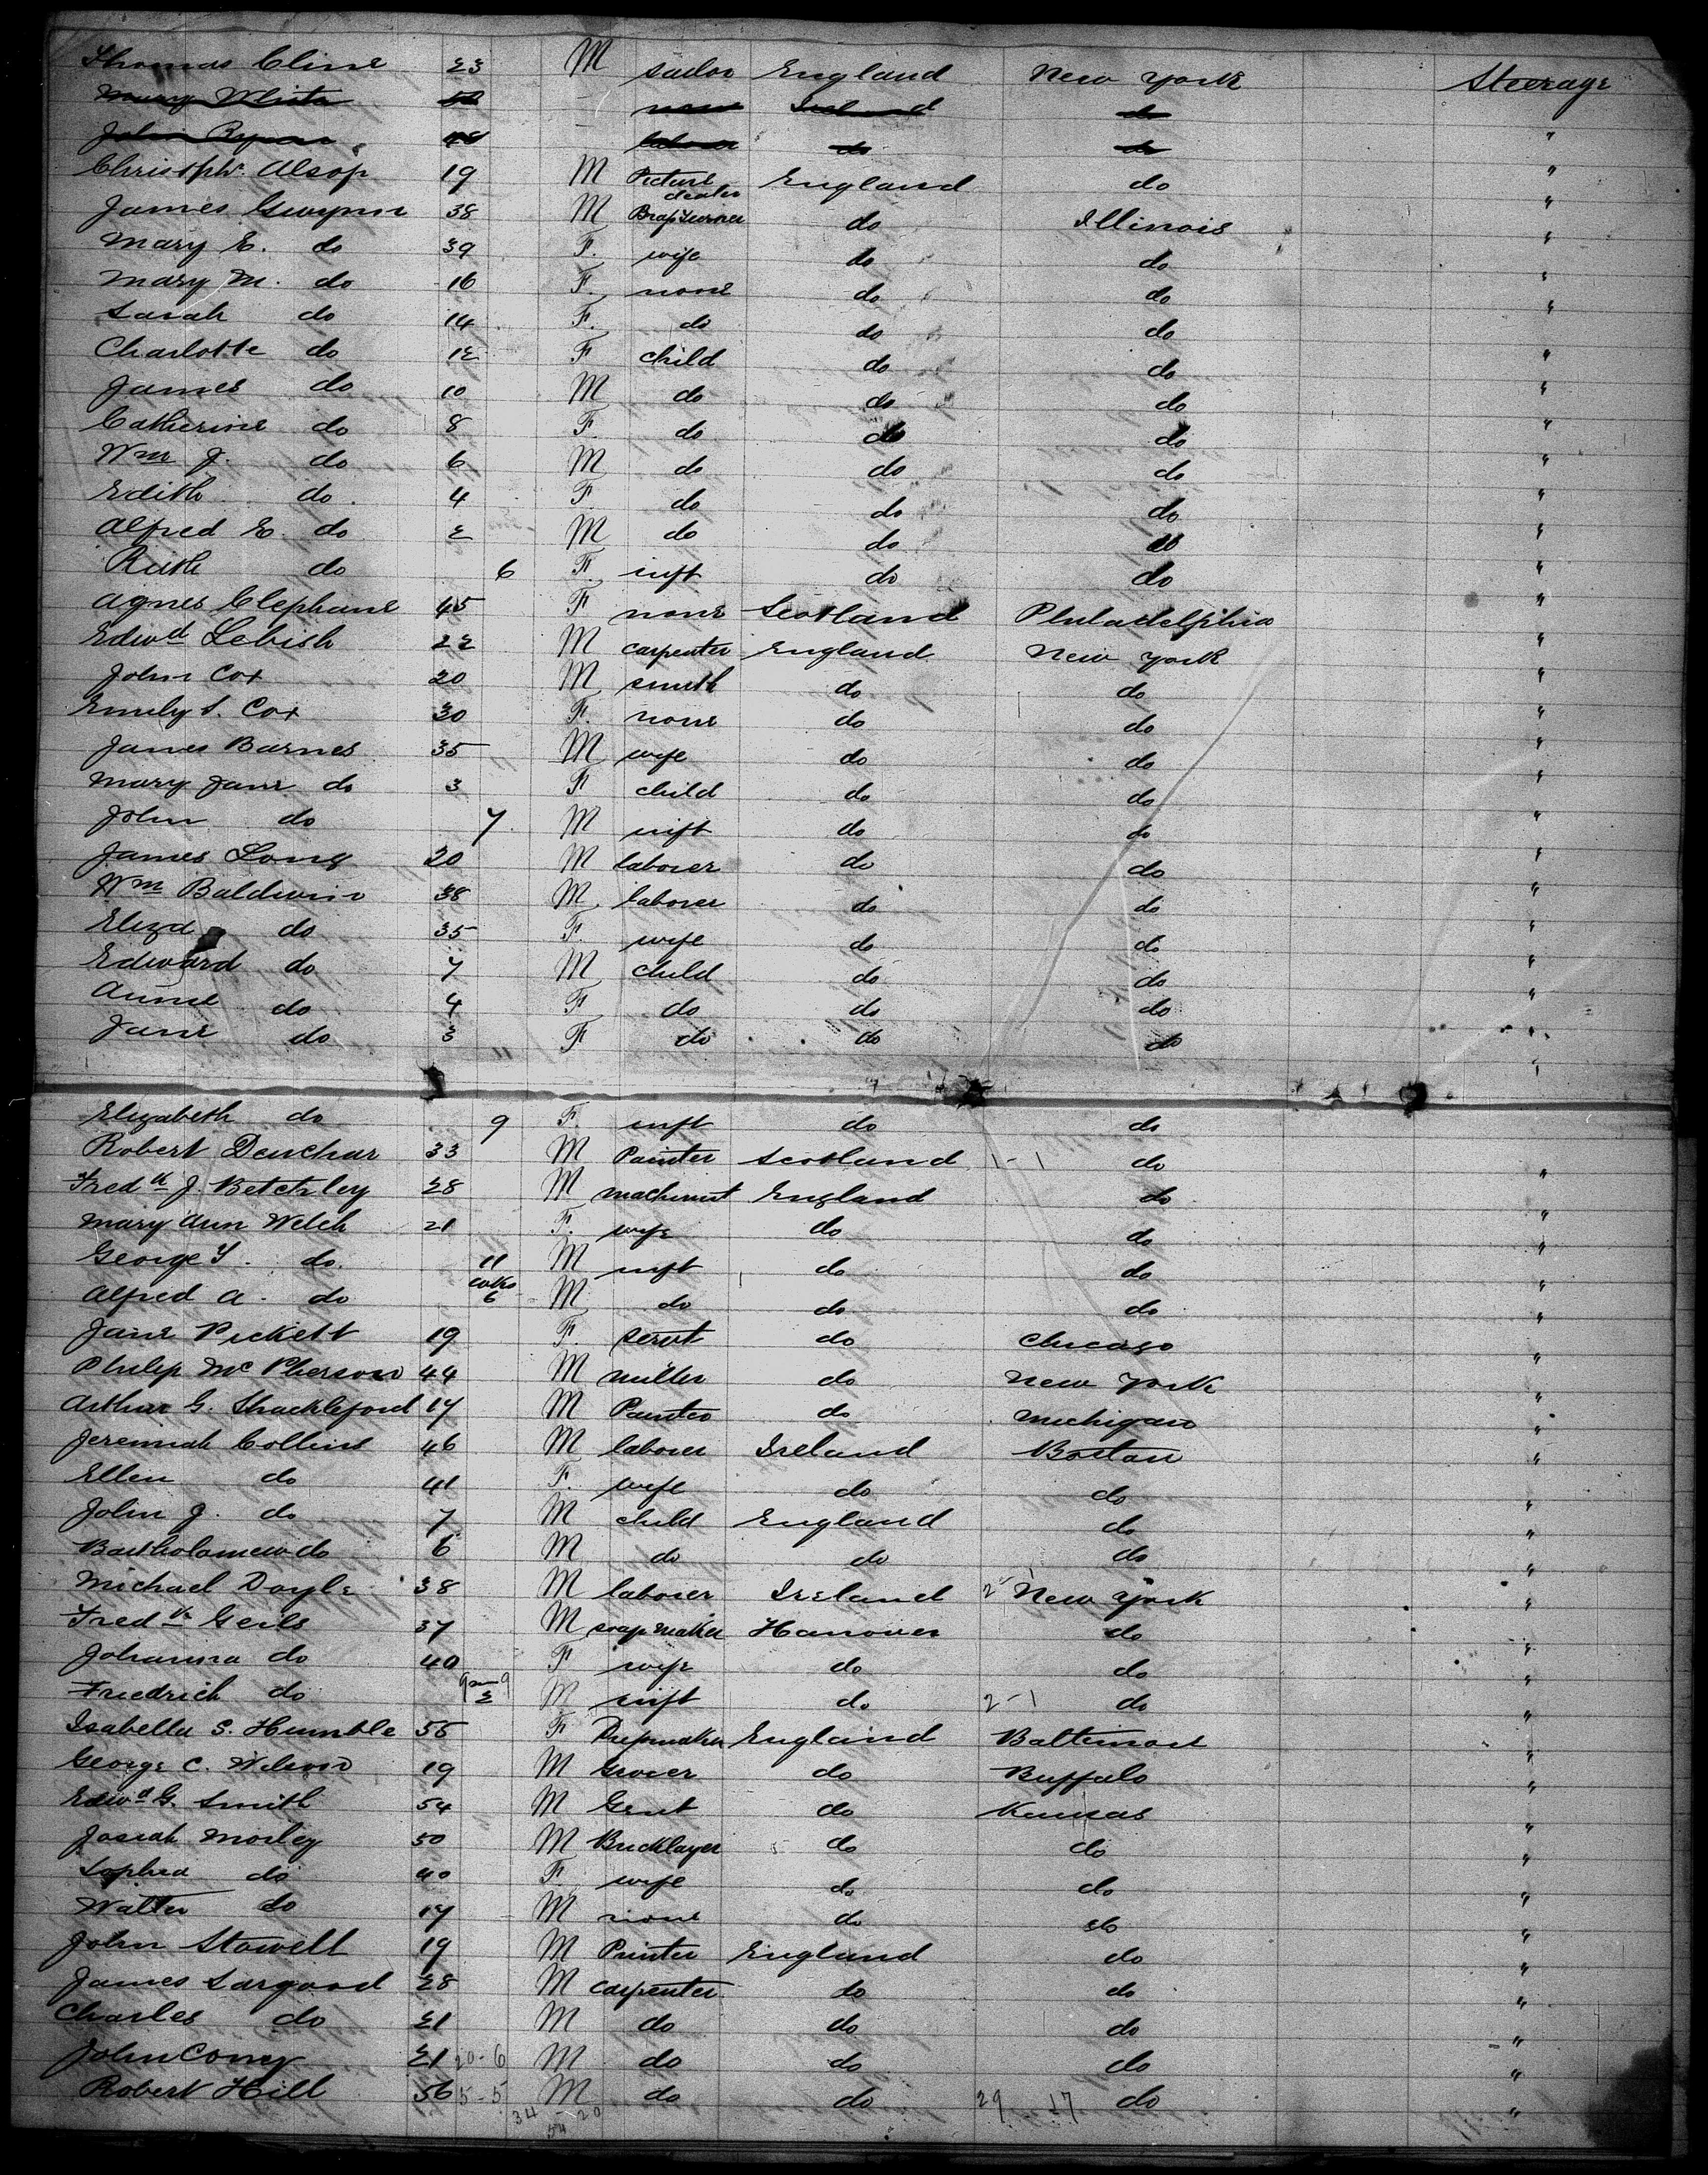 Thomas Cline 23 M sailor England New York Steerage
Mary White none Ireland do "
John Ryan laborer do do "
Christphr. Alsop 19 M Picture dealer England do "
James Gwynne 38 M Brass Turner do Illinois "
Mary E. do 39 F. wife do do "
Mary M. do 16 F. none do do "
Sarah do 14 F. do do do "
Charlotte do 12 F child do do "
James do 10 M do do do "
Catherine do 8 F. do do do "
Wm J. do 6 M do do do "
Edith do 4 F do do do "
Alfred E. do 2 M do do do "
Ruth do 6 F. inft do do "
Agnes Clephane 45 F none Scotland Philadelphia "
Edwd Lebish 22 M carpenter England New York "
John Cox 20 M smith do do "
Emily S. Cox 30 F. none do do "
James Barnes 35 M wife do do "
Mary Jane do 3 F child do do "
John do 7 M inft do do "
James Long 20 M laborer do do "
Wm Baldwin 38 M. laborer do do "
Eliza do 35 F. wife do do "
Edward do 7 M child do do "
Annie do 4 F do do do "
Jane do 3 F do do do "
Elizabeth do 9 F. inft do do
Robert Deuchar 33 M Painter Scotland 1-1 do "
Fredk J. Betchley 28 M machinist England do "
Mary Ann Welch 21 F. wife do do "
George Y. do 11 M inft do do "
Alfred A. do 6 M do do do "
Jane Pickett 19 F. servt do Chicago "
Philip McPherson 44 M miller do New York "
Arthur G. Shackleford 17 M Painter do Michigan "
Jeremiah Collins 46 M laborer Ireland Boston "
Ellen do 41 F. wife do do "
John J. do 7 M child England do "
Bartholomew do 6 M do do do "
Michael Doyle 38 M laborer Ireland New York "
Fredk Geils 37 M soap maker Hanover do "
Johanna do 40 F wife do do "
Friedrich do M inft do 2-1 do "
Isabella S. Humble 55 F Dressmaker England Baltimore "
George C. Wilson 19 M Grocer do Buffalo "
Edwd G. Smith 54 M Gent do Kansas "
Josiah Morley 50 M Bricklayer do do "
Sophia do 40 F. wife do do "
Walter do 17 M none do do "
John Stowell 19 M Printer England do "
James Sargood 28 M carpenter do do "
Charles do 21 M do do do "
John Coney 21 20-6 M do do do "
Robert Hill 56 5-5 M do do 29 17 do "
34 20
54